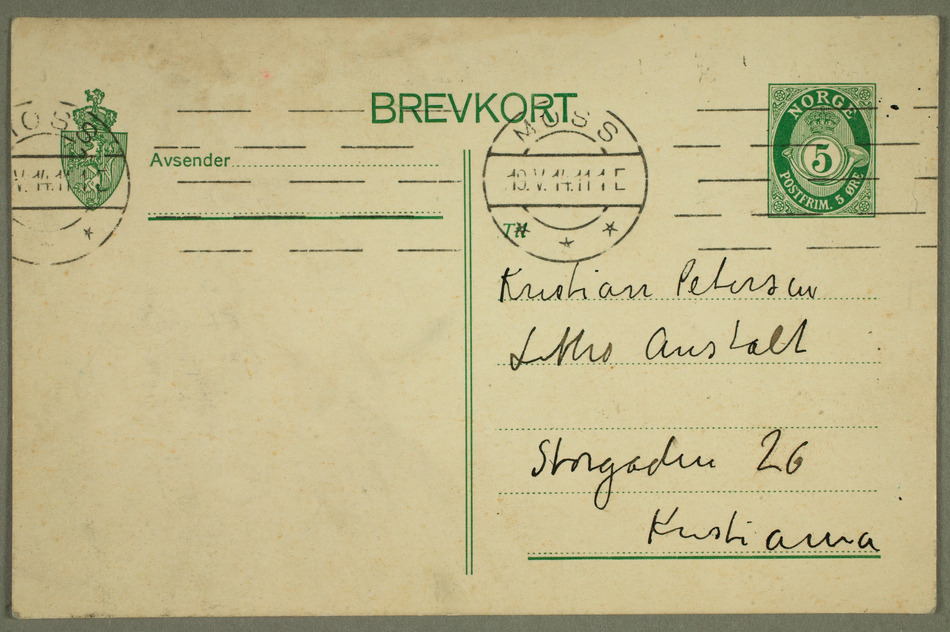 BREVKORT
Avsender
MOSS
V.14.11
MOSS
19.V.14.11 1 E
NORGE
5
POSTFRIM. 5 ØRE
Til
Kristian Petersen
Litho Anstalt
Storgaden 26
Kristiania